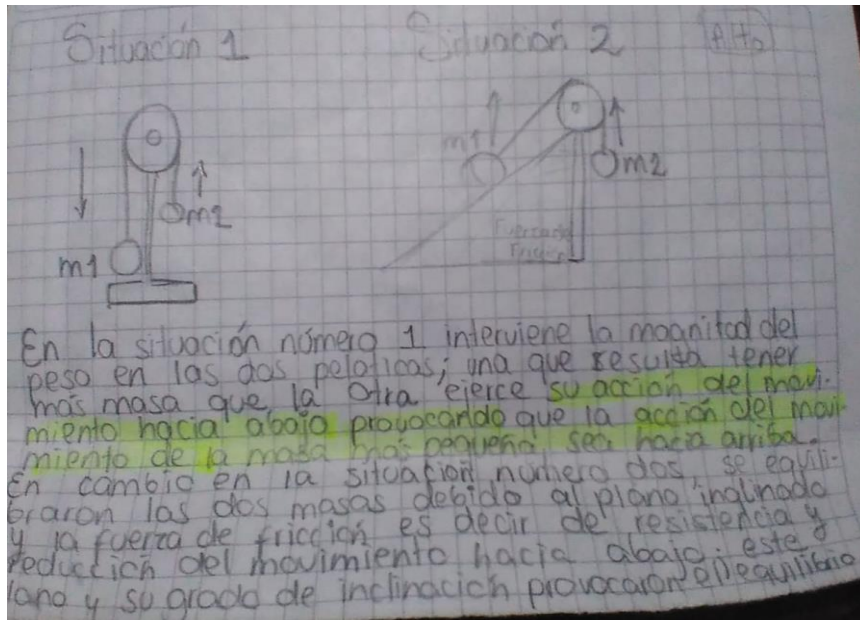 Situación 1
Situación 2
Alto
m1
m2
m1
m2
Fuerza de
En la situación número 1 interviene la magnitud del
peso en las dos peloticas; una que resulta tener
más masa que la otra ejerce su acción del movi-
miento hacia abajo provocando que la acción del movi-
miento de la masa más pequeña, sea hacia arriba.
En cambio en la situación numero dos, se equili-
braron las dos masas debido al plano inglinado
y la fuerza de fricción es decir de resistencia y
reducción del movimiento hacia abajo; este
lano y su grado de inclinación provocaron el equilibrio